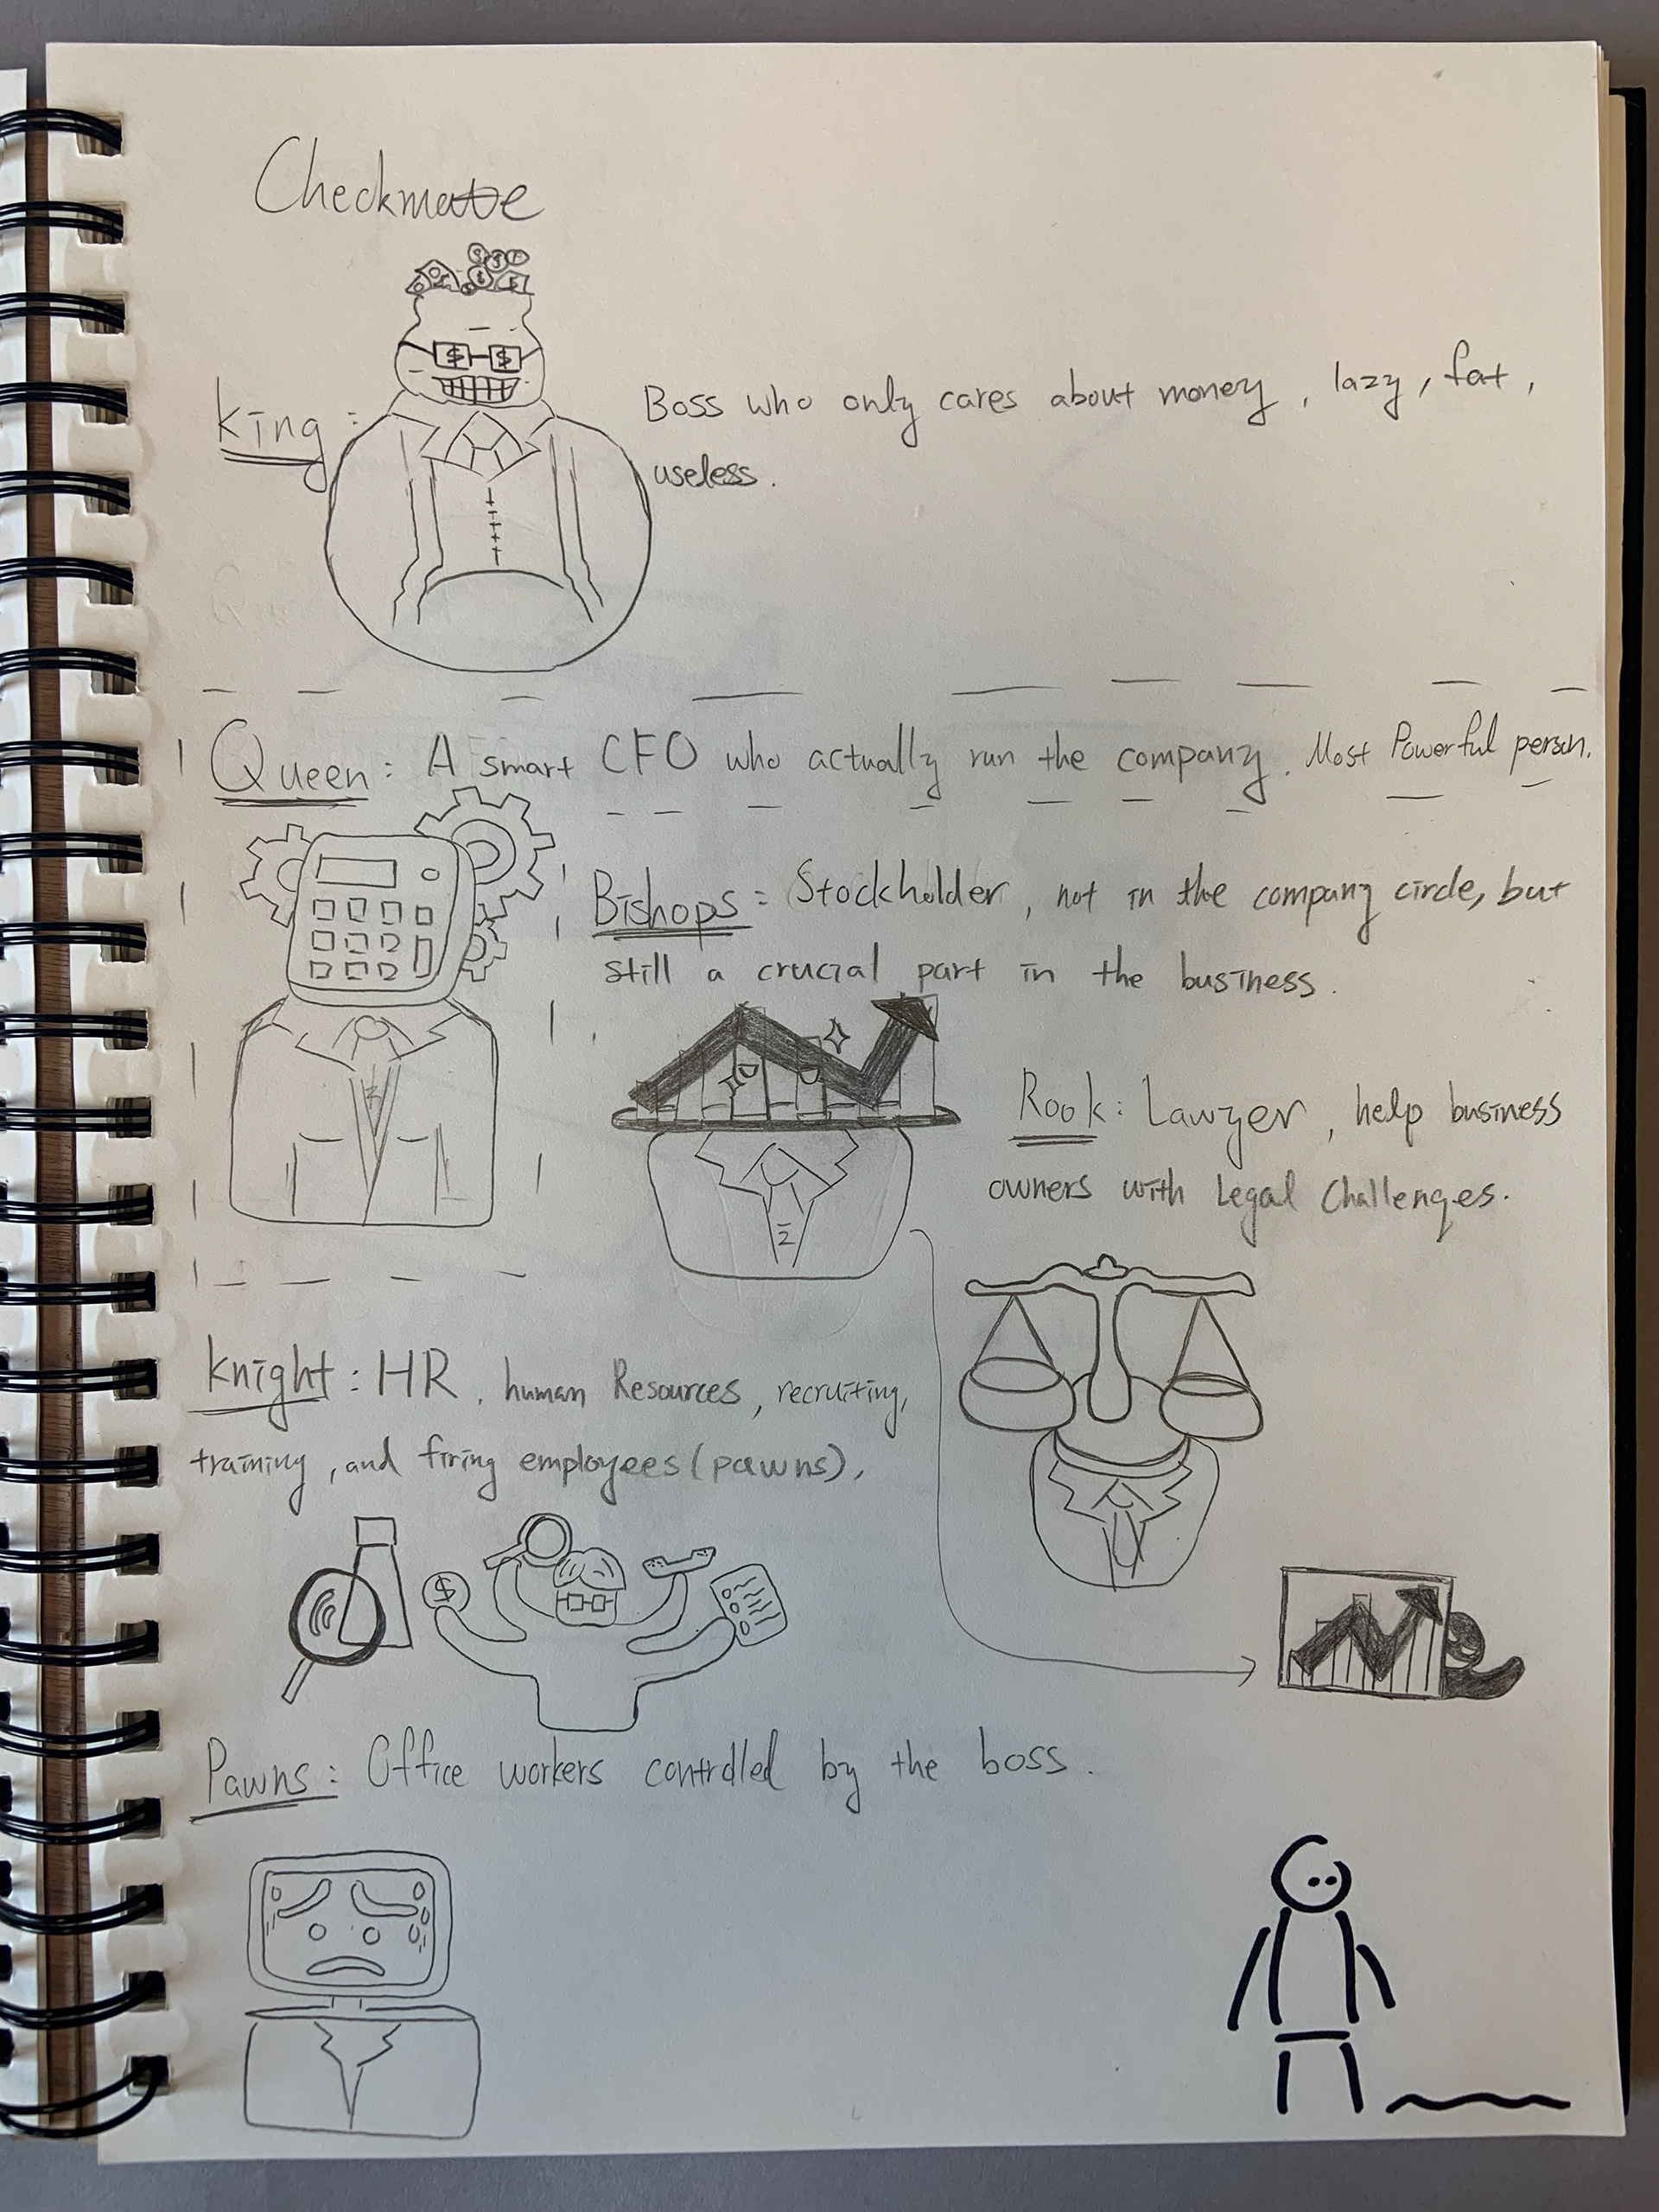 Checkmate
$ $
King: Boss who only cares about money, lazy, fat,
useless.
Queen: A smart CFO who actually run the company. Most Powerful person.
Bishops: Stockholder, not in the company circle, but
still a crucial part in the business.
Rook: Lawyer, help business
owners with Legal Challenges.
Knight: HR, human Resources, recruiting,
training, and firing employees (pawns),
$
Pawns: Office workers controlled by the boss.